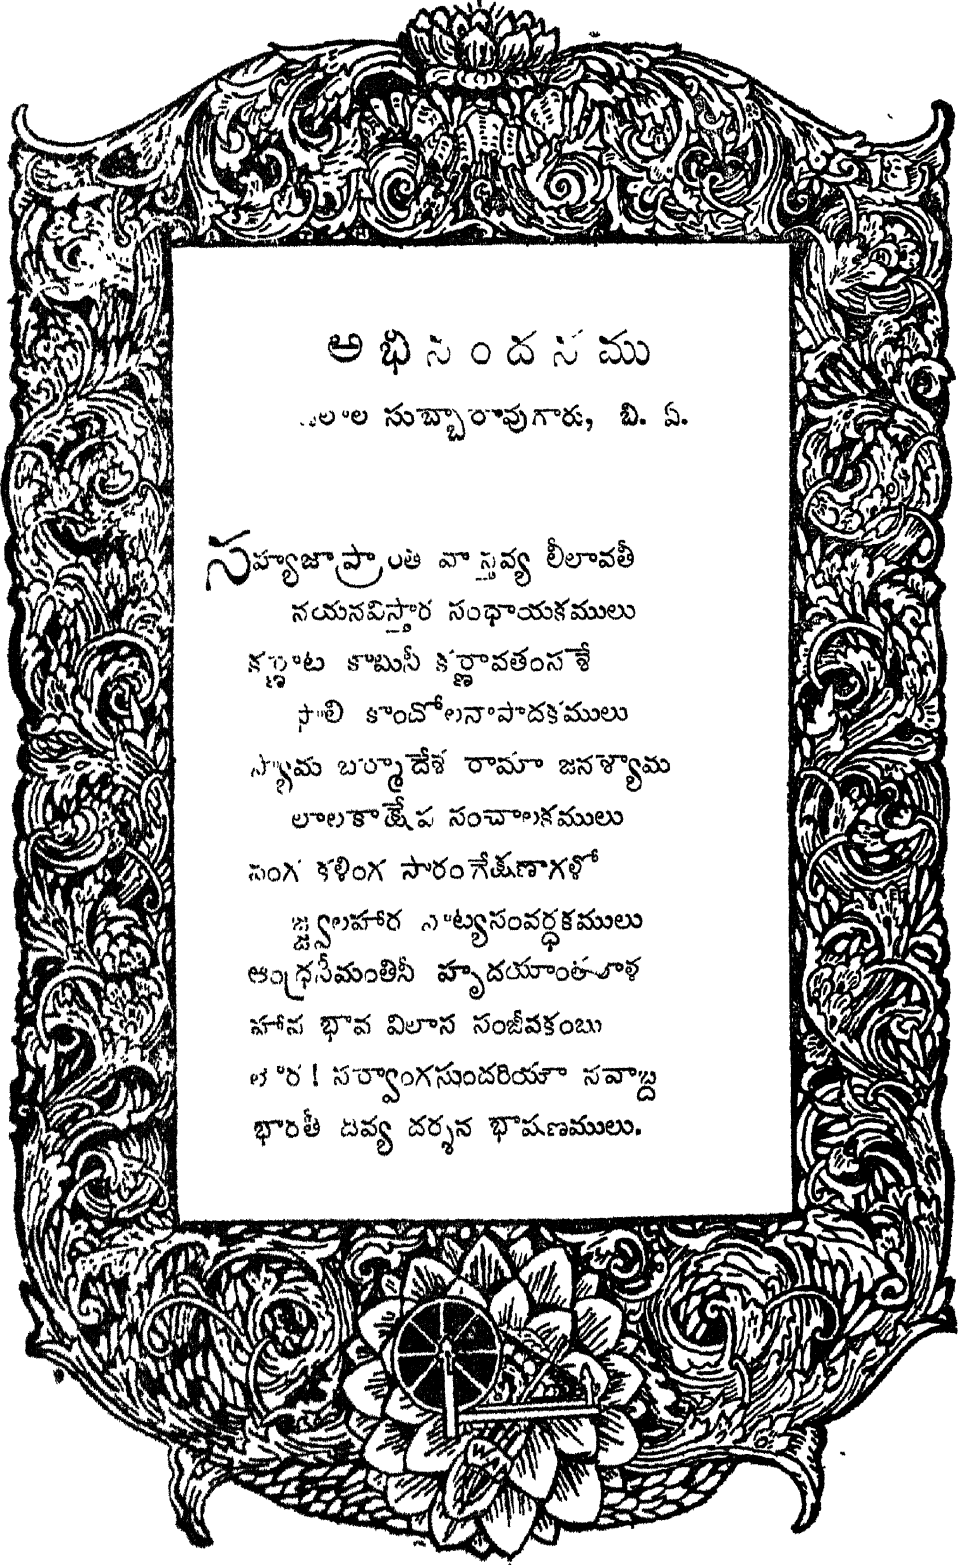 అభినందనము
సుబ్బారావుగారు, బి. ఏ.
సహ్యజాప్రాంత వాస్తవ్య లీలావతీ
నయనవిస్తార సంధాయకములు
కర్ణాట కామినీ కర్ణావతంస
కాందోలనాపాదకములు
బర్మాదేశ రామా జనశ్యామ
సంచాలకములు
వంగ కళింగ సారంగేక్షణాగళో
జ్జ్వలహార నాట్యసంవర్ధకములు
ఆంధ్రసీమంతినీ హృదయాంతరాళ
హావ భావ విలాస సంజీవకంబు
లౌర! సర్వాంగసుందరియౌ నవాబ్ద
భారతీ దివ్య దర్శన భాషణములు.